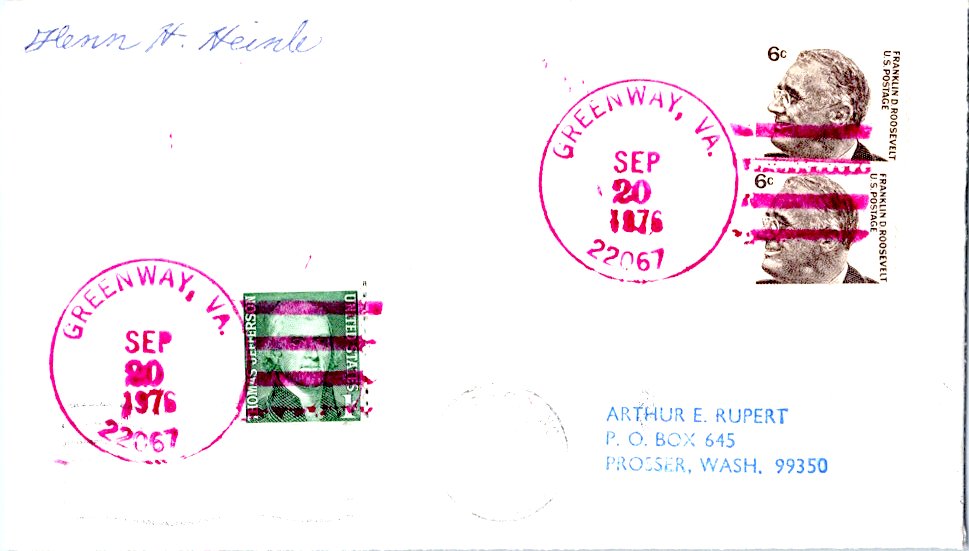 Glenn H. Heinle
6c
FRANKLIN D ROOSEVELT
U.S. POSTAGE
GREENWAY, VA.
SEP
20
1976
22067
6c
FRANKLIN D ROOSEVELT
U.S. POSTAGE
GREENWAY, VA.
SEP
20
1976
22067
THOMAS JEFFERSON
UNITED STATES
ARTHUR E. RUPERT
P. O. BOX 645
PROSSER, WASH. 99350